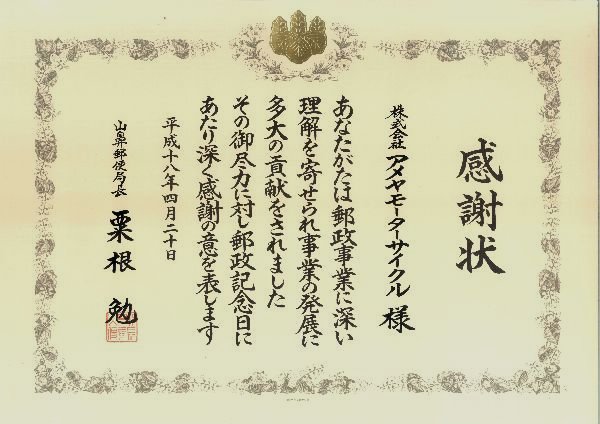 感謝状
株式会社 アメヤモーターサイクル 様
あなたがたは郵政事業に深い
理解を寄せられ事業の発展に
多大の貢献をされました
その御尽力に対し郵政記念日に
あたり深く感謝の意を表します
平成十八年四月二十日
山鼻郵便局長 粟根 勉